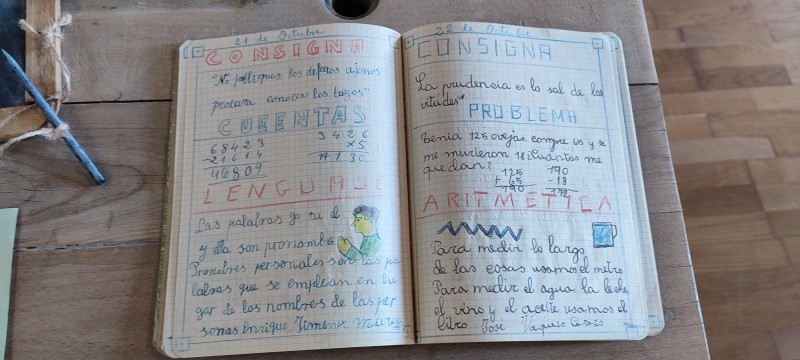 21 de Octubre
CONSIGNA
"No publiques los defectos ajenos
procura conocer los tuyos"
CUEENTAS
68423
-21614
46809
3426
×5
LENGUAJE
Las palabras yo tu el
y ella son pronombres
Pronobres personales son las pa
labras que se emplean en lu
gar de los nombres de las per
sonas Enrique Jimenez
22 de Octubre
CONSIGNA
La prudencia es la sal de las
vitudes"
PROBLEMA
Tenia 125 ovejas, compre 65 y se
me murieron 18 ¿Cuantas me
quedan?
125
+ 65
190
190
-18
172
ARITMETICA
Para medir lo largo
de las cosas usamos el metro
Para medir el agua la leche
el vino y el aceite usamos el
litro José Vazquez